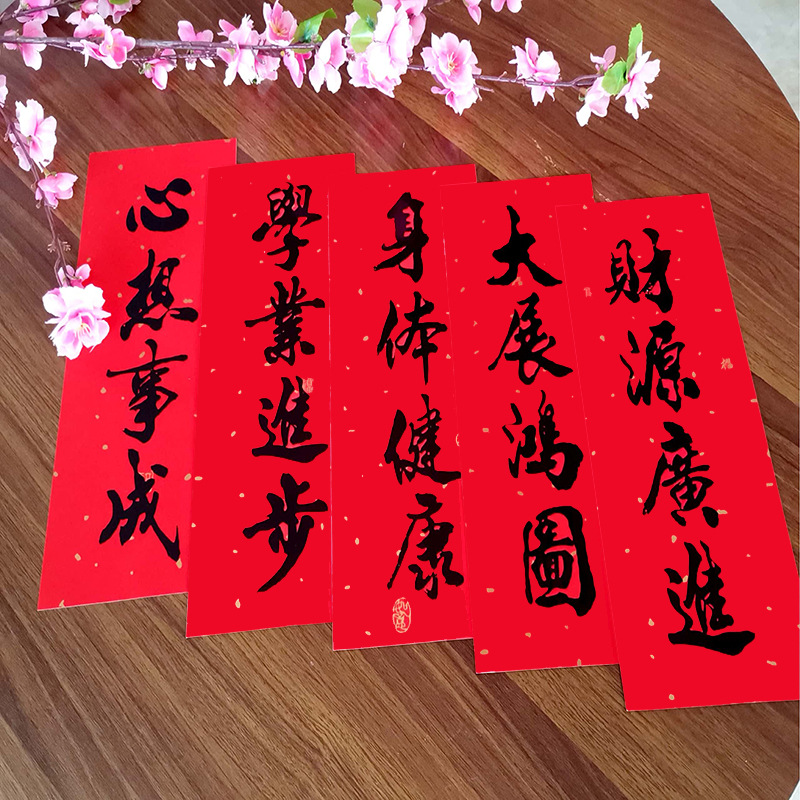 心想事成
學業進步
身体健康
大展鴻圖
財源廣進